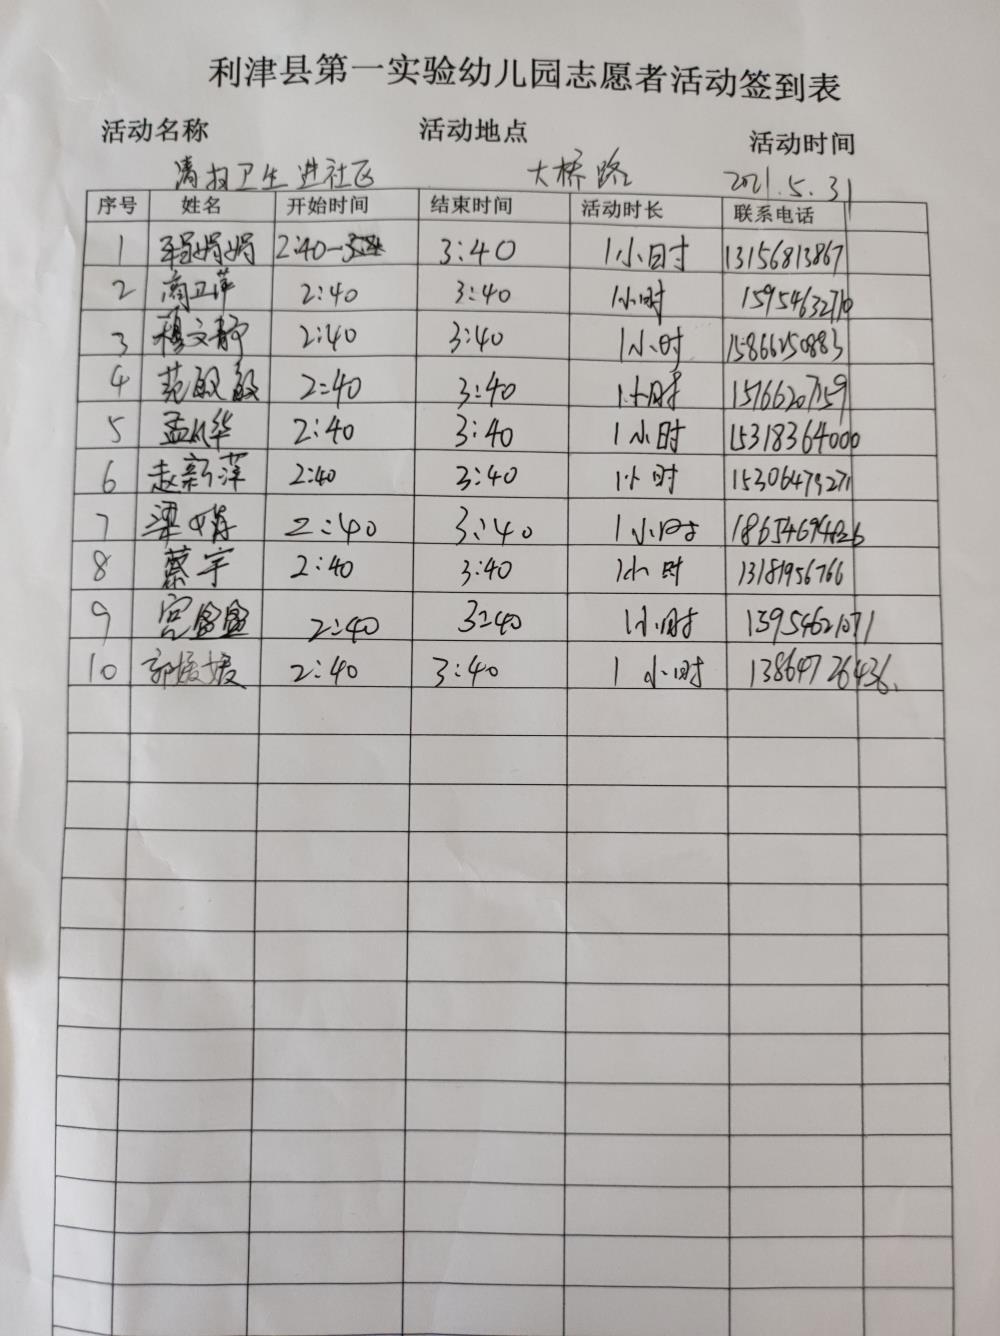 利津县第一实验幼儿园志愿者活动签到表
活动名称 活动地点 活动时间
清扫卫生进社区 大桥路 2021.5.31
序号 姓名 开始时间 结束时间 活动时长 联系电话
1 程娟娟 2:40 3:40 1小时 13156813867
2 商卫萍 2:40 3:40 1小时 15954632710
3 穆文静 2:40 3:40 1小时 15866250883
4 范敏敏 2:40 3:40 1小时 15766207159
5 孟凡华 2:40 3:40 1小时 15318364000
6 赵新萍 2:40 3:40 1小时 15306479271
7 梁 2:40 3:40 1小时
8 蔡宇 2:40 3:40 1小时 13181956766
9 宫盈盈 2:40 3:40 1小时 13954621071
10 郭媛媛 2:40 3:40 1小时 13864726436.